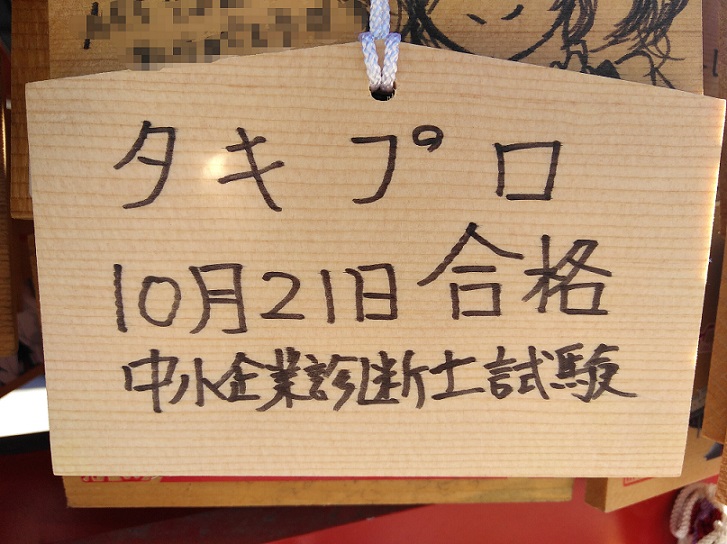 タキプロ
10月21日合格
中小企業診断士試験